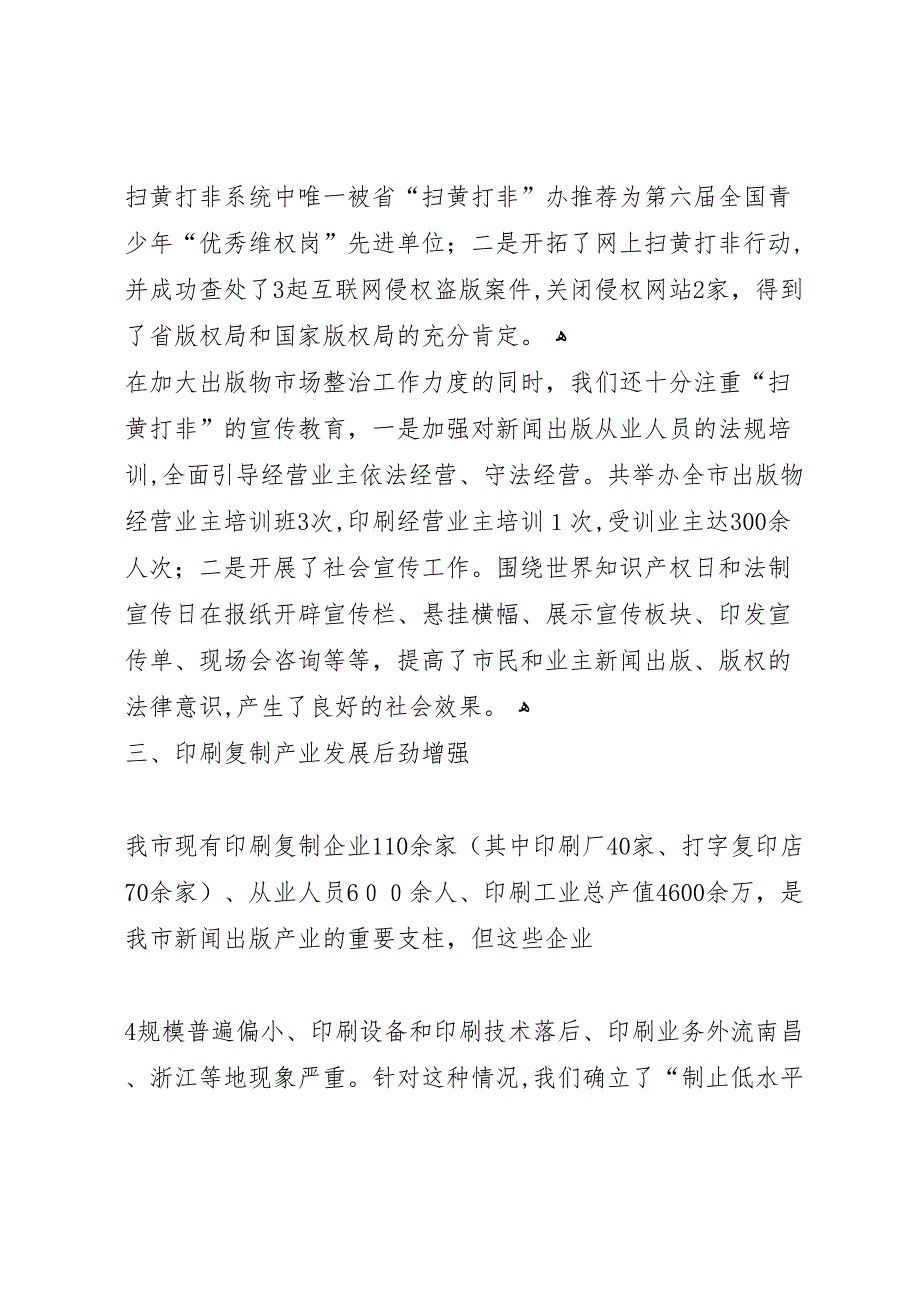 扫黄打非系统中唯一被省“扫黄打非”办推荐为第六届全国青
少年“优秀维权岗”先进单位；二是开拓了网上扫黄打非行动,
并成功查处了3起互联网侵权盗版案件,关闭侵权网站2家，得到
了省版权局和国家版权局的充分肯定。 ﻫ
在加大出版物市场整治工作力度的同时，我们还十分注重“扫
黄打非”的宣传教育，一是加强对新闻出版从业人员的法规培
训,全面引导经营业主依法经营、守法经营。共举办全市出版物
经营业主培训班3次,印刷经营业主培训１次,受训业主达300余
人次；二是开展了社会宣传工作。围绕世界知识产权日和法制
宣传日在报纸开辟宣传栏、悬挂横幅、展示宣传板块、印发宣
传单、现场会咨询等等，提高了市民和业主新闻出版、版权的
法律意识,产生了良好的社会效果。 ﻫ
三、印刷复制产业发展后劲增强
我市现有印刷复制企业110余家（其中印刷厂40家、打字复印店
70余家）、从业人员6００余人、印刷工业总产值4600余万，是
我市新闻出版产业的重要支柱，但这些企业
4规模普遍偏小、印刷设备和印刷技术落后、印刷业务外流南昌
、浙江等地现象严重。针对这种情况,我们确立了“制止低水平